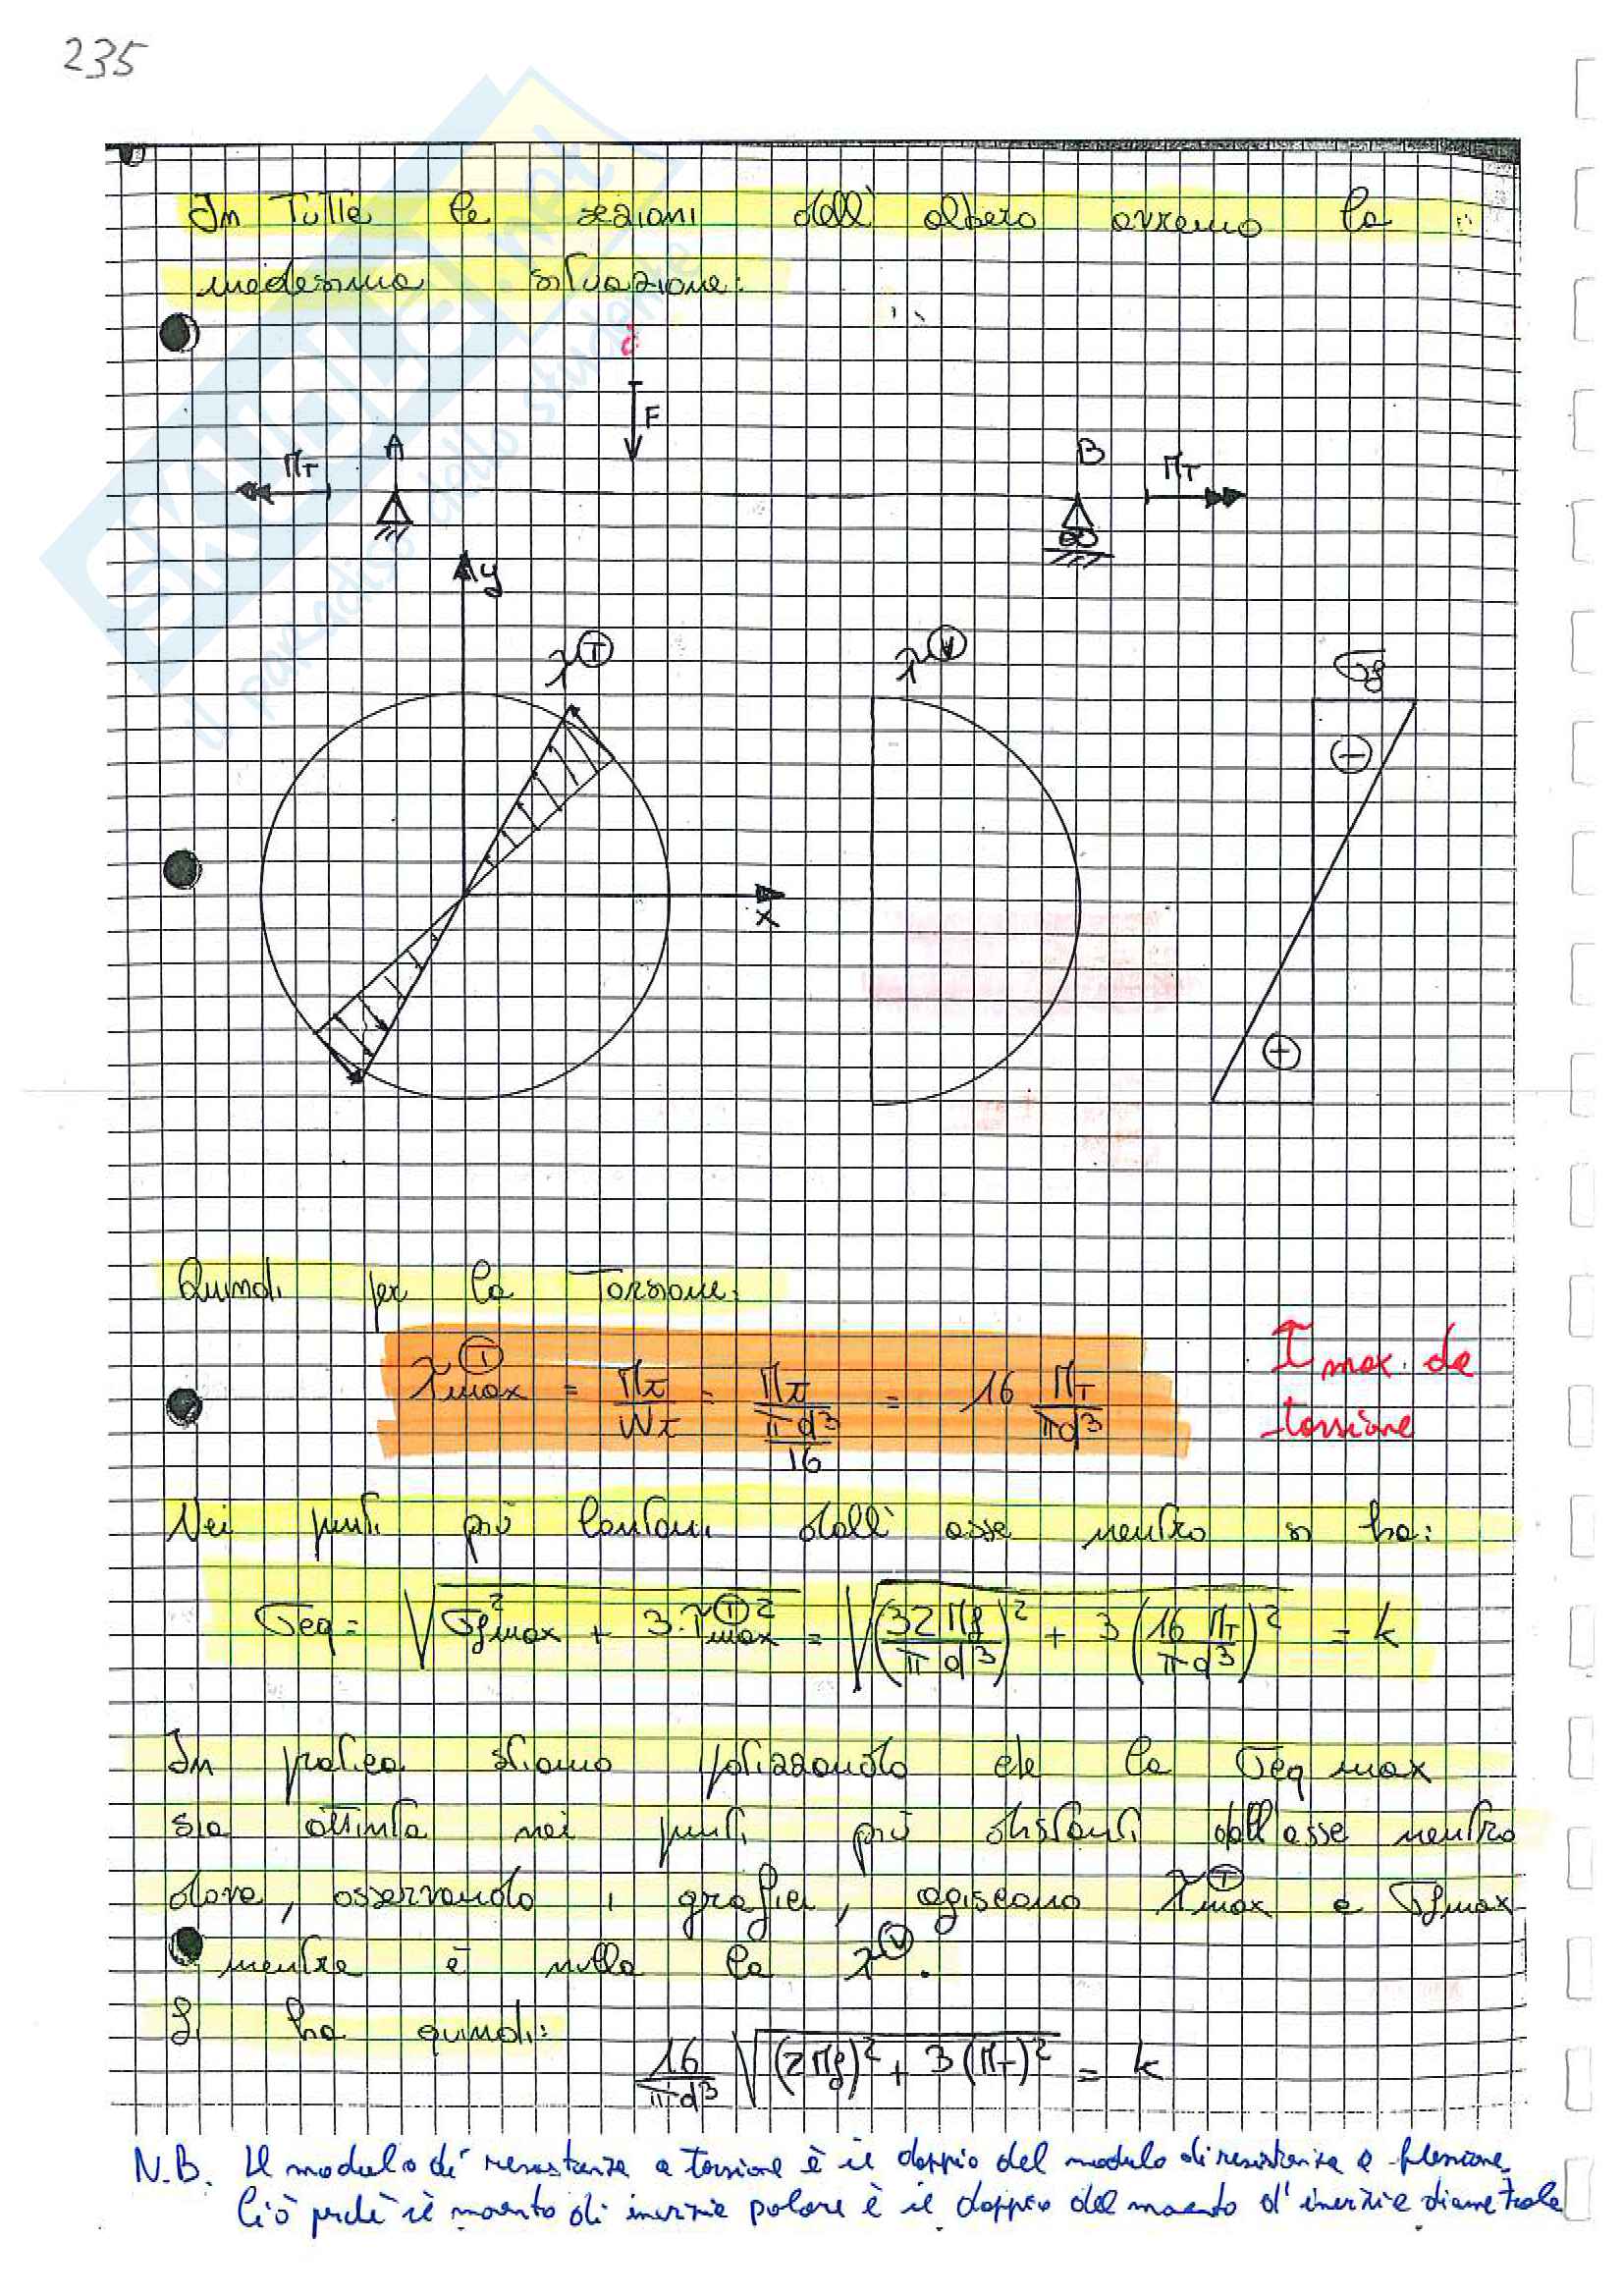 235
SKUOLA.net
il paradiso dello studente
In tutte le sezioni dell' albero avremo la
medesima situazione:
F
A
B
M_T
M_T
y
τ^(T)
τ^(V)
σ_f
-
x
+
Quindi per la torsione:
τ^(T)_max = M_T / W_T = M_T / (πd³/16) = 16 M_T / πd³
τ max da
torsione
Nei punti più lontani dall' asse neutro si ha:
σeq = √(σ_f²max + 3·τ^(T)²max) = √((32 M_f / πd³)² + 3 (16 M_T / πd³)²) = k
In pratica stiamo ipotizzando che la σeq max
sia attinta nei punti più distanti dall'asse neutro
dove, osservando i grafici, agiscono τ^(T)max e σ_fmax
mentre è nulla la τ^(V).
Si ha quindi:
16/πd³ √((2M_f)² + 3(M_T)²) = k
N.B. Il modulo di resistenza a torsione è il doppio del modulo di resistenza a flessione.
Ciò perchè il momento di inerzia polare è il doppio del momento d'inerzia diametrale